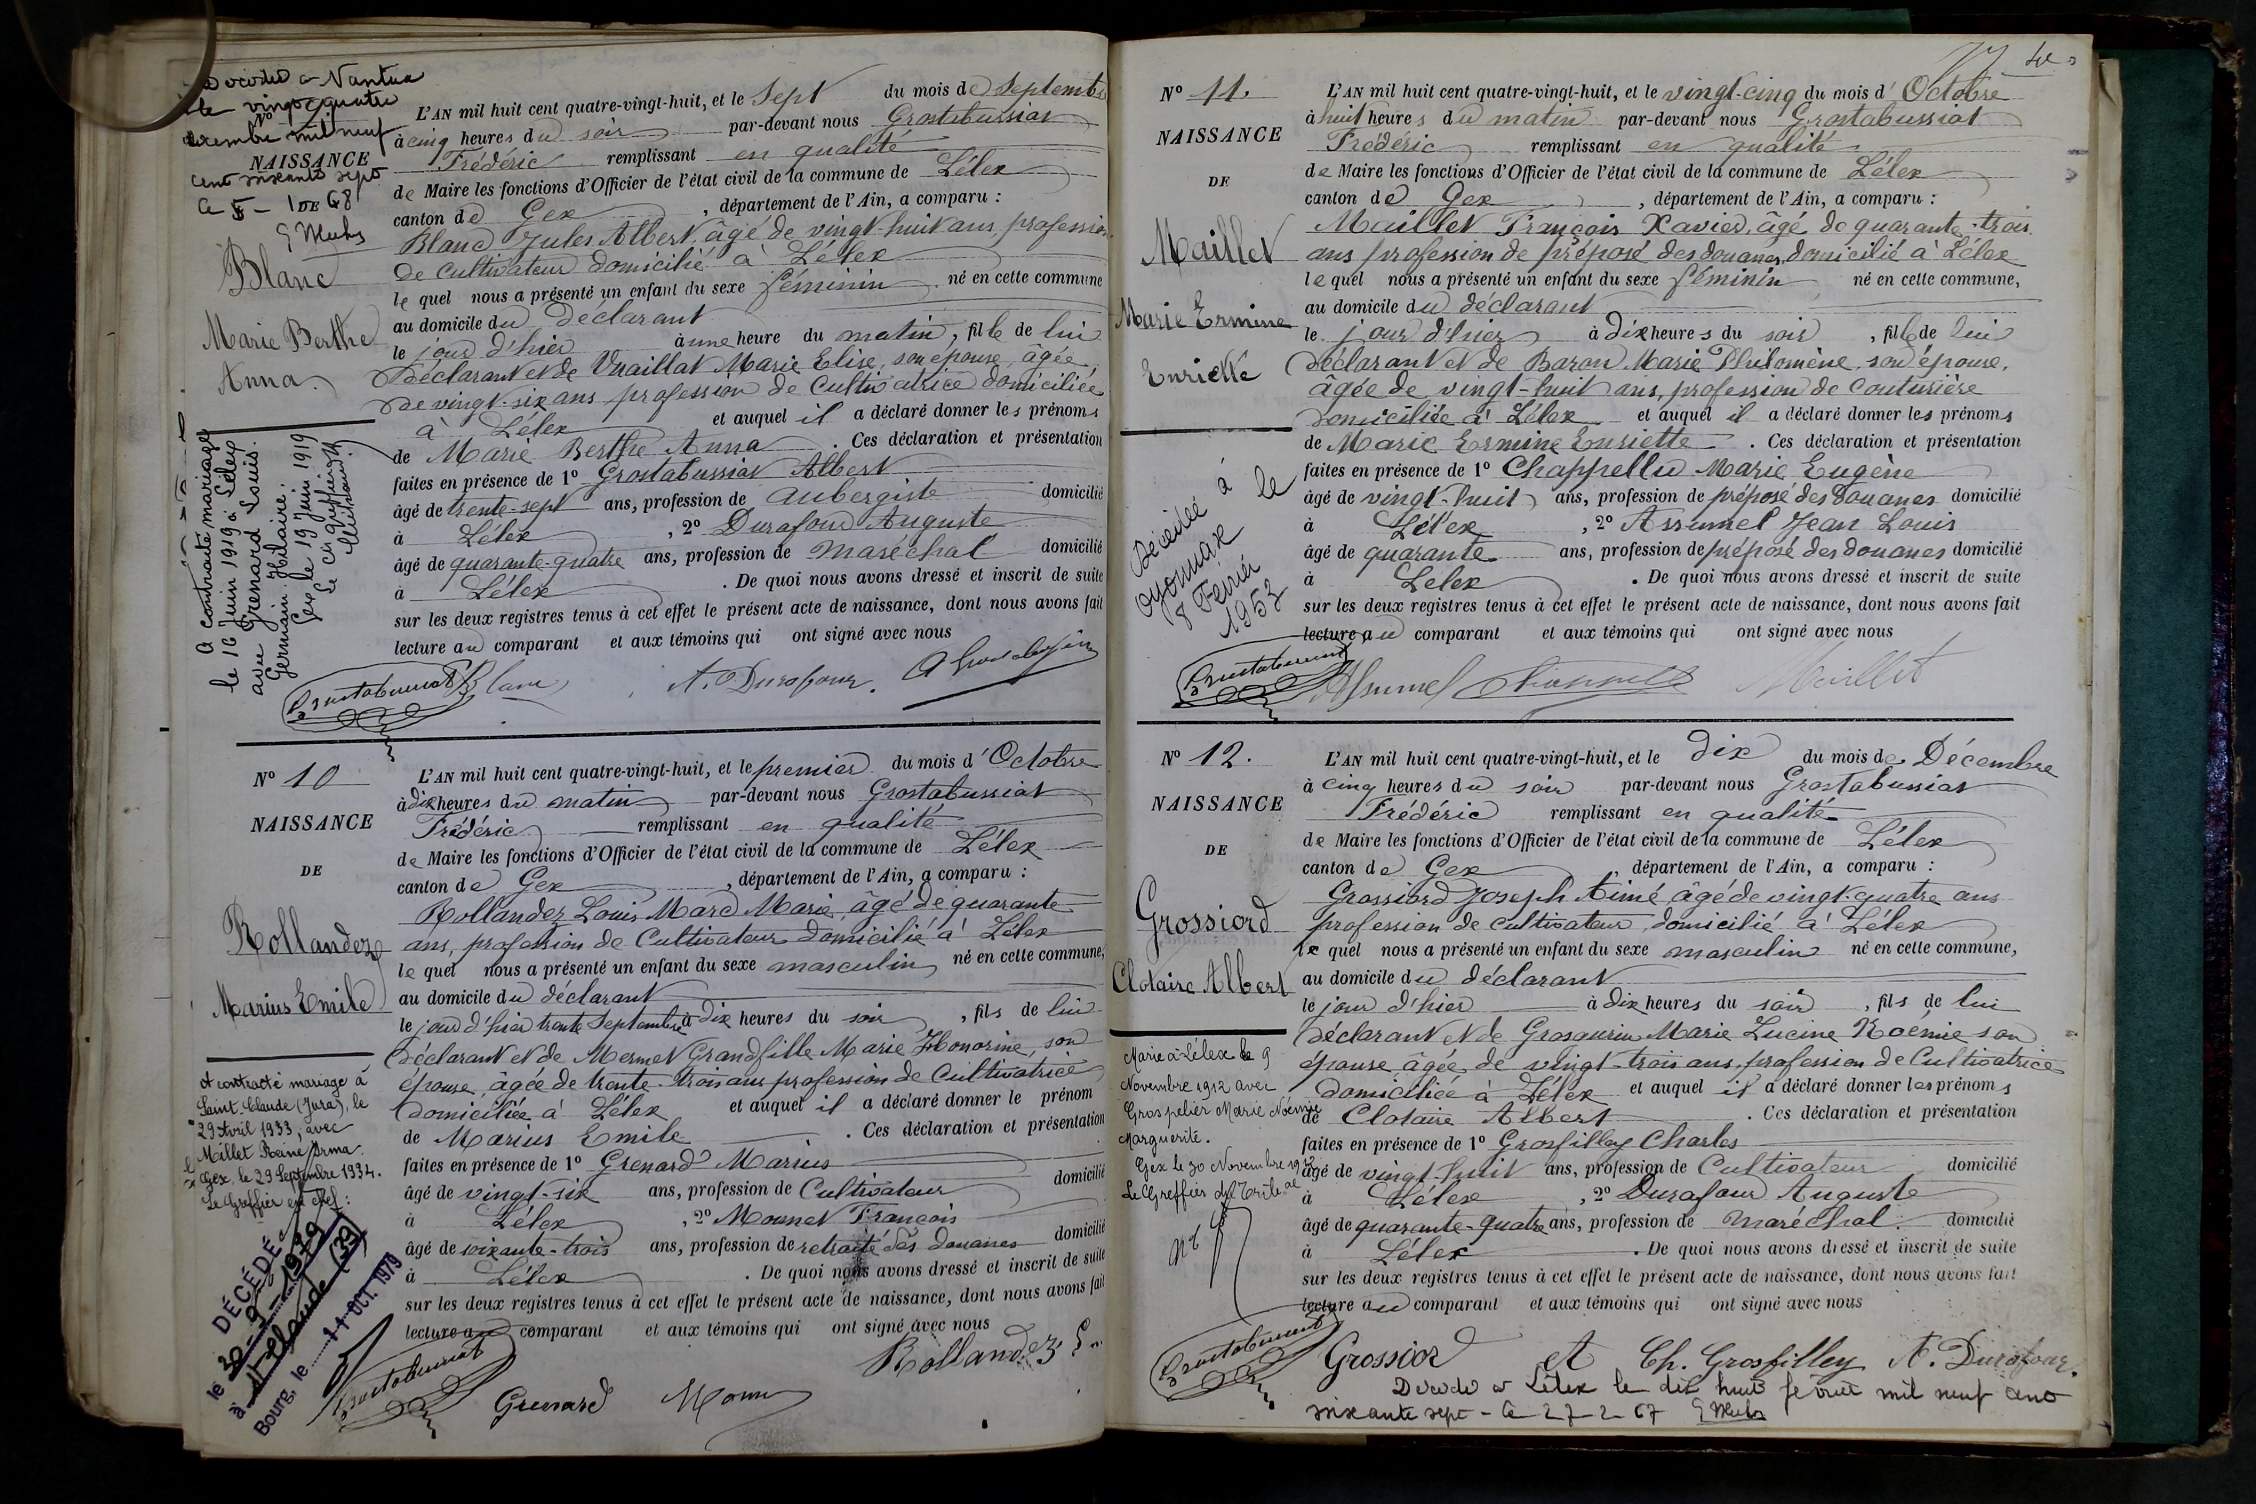 Décédée à Nantua
le vingt quatre
Nº 9
décembre mil neuf
NAISSANCE
cent soixante sept
DE
Blanc
Marie Berthe
Anna
A contracté mariage
le 16 Juin 1919 à Lélex
avec Grenard Louis
Germain Hilaire.
Gex le 19 Juin 1919
Le Cis greffier
L'AN mil huit cent quatre-vingt-huit, et le sept du mois de Septembre
à cinq heures du soir par-devant nous Grostabussiat
Frédéric remplissant en qualité
de Maire les fonctions d'Officier de l'état civil de la commune de Lélex
canton de Gex, département de l'Ain, a comparu :
Blanc Jules Albert, âgé de vingt-huit ans, profession
de cultivateur domicilié à Lélex
lequel nous a présenté un enfant du sexe féminin né en cette commune
au domicile du déclarant
le jour d'hier à une heure du matin, fille de lui
déclarant et de Vuaillat Marie Elise, son épouse, âgée
de vingt-six ans profession de cultivatrice domiciliée
à Lélex et auquel il a déclaré donner les prénoms
de Marie Berthe Anna. Ces déclaration et présentation
faites en présence de 1º Grostabussiat Albert
âgé de trente-sept ans, profession de aubergiste domicilié
à Lélex, 2º Durafour Auguste
âgé de quarante-quatre ans, profession de maréchal domicilié
à Lélex. De quoi nous avons dressé et inscrit de suite
sur les deux registres tenus à cet effet le présent acte de naissance, dont nous avons fait
lecture au comparant et aux témoins qui ont signé avec nous
Grostabussiat Blanc A. Durafour
Nº 10
NAISSANCE
DE
Rollandez
Marius Emile
A contracté mariage à
Saint-Claude (Jura), le
29 Avril 1933, avec
Millet Reine Irma.
Gex, le 29 Septembre 1934.
Le Greffier en chef :
DÉCÉDÉ
le 30-9-1979
à St Claude (39)
Bourg, le 11 OCT. 1979
L'AN mil huit cent quatre-vingt-huit, et le premier du mois d'Octobre
à dix heures du matin par-devant nous Grostabussiat
Frédéric remplissant en qualité
de Maire les fonctions d'Officier de l'état civil de la commune de Lélex
canton de Gex, département de l'Ain, a comparu :
Rollandez Louis Marc Marie, âgé de quarante
ans, profession de Cultivateur domicilié à Lélex
lequel nous a présenté un enfant du sexe masculin né en cette commune,
au domicile du déclarant
le jour d'hier trente Septembre à dix heures du soir, fils de lui
déclarant et de Mermet Grandfille Marie Honorine, son
épouse, âgée de trente-trois ans profession de Cultivatrice
domiciliée à Lélex et auquel il a déclaré donner le prénom
de Marius Emile. Ces déclaration et présentation
faites en présence de 1º Grenard Marius
âgé de vingt-six ans, profession de Cultivateur domicilié
à Lélex, 2º Mounet François
âgé de soixante-trois ans, profession de retraité des douanes domicilié
à Lélex. De quoi nous avons dressé et inscrit de suite
sur les deux registres tenus à cet effet le présent acte de naissance, dont nous avons fait
lecture au comparant et aux témoins qui ont signé avec nous
Rollandez
Grostabussiat Grenard
Nº 11.
NAISSANCE
DE
Maillet
Marie Ermine
Enriette
Décédée à
Oyonnax le
8 Février
1953
L'AN mil huit cent quatre-vingt-huit, et le vingt-cinq du mois d'Octobre
à huit heures du matin par-devant nous Grostabussiat
Frédéric remplissant en qualité
de Maire les fonctions d'Officier de l'état civil de la commune de Lélex
canton de Gex, département de l'Ain, a comparu :
Maillet François Xavier, âgé de quarante-trois
ans profession de préposé des douanes, domicilié à Lélex
lequel nous a présenté un enfant du sexe féminin né en cette commune,
au domicile du déclarant
le jour d'hier à dix heures du soir, fille de lui
déclarant et de Baron Marie Philomène, son épouse,
âgée de vingt-huit ans, profession de couturière
domiciliée à Lélex et auquel il a déclaré donner les prénoms
de Marie Ermine Enriette. Ces déclaration et présentation
faites en présence de 1º Chappellu Marie Eugène
âgé de vingt-huit ans, profession de préposé des douanes domicilié
à Lélex, 2º Assumel Jean Louis
âgé de quarante ans, profession de préposé des douanes domicilié
à Lelex. De quoi nous avons dressé et inscrit de suite
sur les deux registres tenus à cet effet le présent acte de naissance, dont nous avons fait
lecture au comparant et aux témoins qui ont signé avec nous
Grostabussiat Assumel Maillet
Nº 12.
NAISSANCE
DE
Grossiord
Clotaire Albert
Marié à Lélex le 9
Novembre 1912 avec
Grospelier Marie Noémie
Marguerite.
Gex le 30 Novembre 1912
Le Greffier du Tribal
L'AN mil huit cent quatre-vingt-huit, et le dix du mois de Décembre
à cinq heures du soir par-devant nous Grostabussiat
Frédéric remplissant en qualité
de Maire les fonctions d'Officier de l'état civil de la commune de Lélex
canton de Gex, département de l'Ain, a comparu :
Grossiord Joseph Aimé, âgé de vingt-quatre ans
profession de cultivateur, domicilié à Lélex
lequel nous a présenté un enfant du sexe masculin né en cette commune,
au domicile du déclarant
le jour d'hier à dix heures du soir, fils de lui
déclarant et de Grosgurin Marie Lucine Noémie son
épouse, âgée de vingt-trois ans, profession de Cultivatrice
domiciliée à Lélex et auquel il a déclaré donner les prénoms
de Clotaire Albert. Ces déclaration et présentation
faites en présence de 1º Grosfilley Charles
âgé de vingt-huit ans, profession de Cultivateur domicilié
à Lélex, 2º Durafour Auguste
âgé de quarante-quatre ans, profession de maréchal domicilié
à Lélex. De quoi nous avons dressé et inscrit de suite
sur les deux registres tenus à cet effet le présent acte de naissance, dont nous avons fait
lecture au comparant et aux témoins qui ont signé avec nous
Grostabussiat Grossiord Ch. Grosfilley A. Durafour
Décédé à Lélex le dix huit février mil neuf cent
soixante sept - le 27-2-67